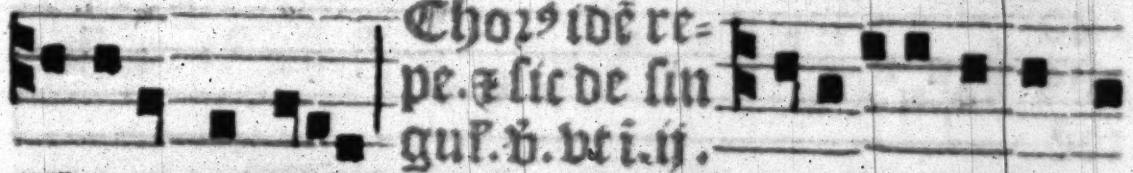 Chorꝰ idē re=
pe. ⁊ sic de sin
gul̄. v̄. vt ī. ij.